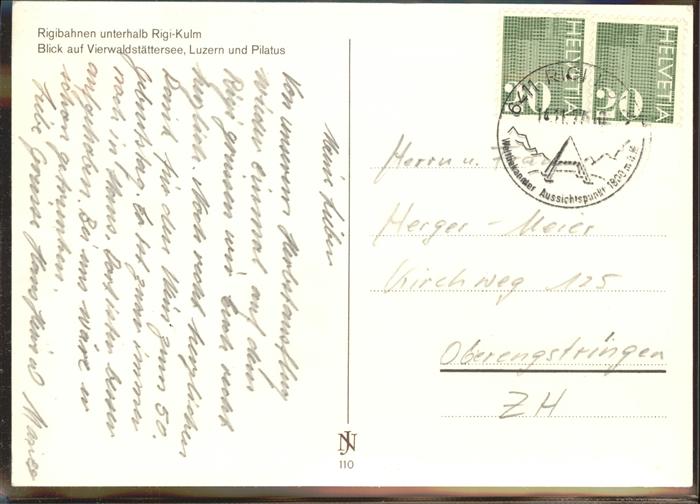 Rigibahnen unterhalb Rigi-Kulm
Blick auf Vierwaldstättersee, Luzern und Pilatus
Meine Lieben
Von unserem Herbstausflug
wieder einmal auf den
Rigi grüssen wir Euch recht
herzlich. Noch recht herzlichen
Dank für den Wein zum 50.
Geburtstag. Er ist zwar immer
noch in Haus,
aufgehoben. Bei uns wäre er
schon getrunken.
Liebe Grüsse
HELVETIA
50
HELVETIA
50
6411 RIGI
Weitbekannter Aussichtspunkt 1800 m ü. M.
Herrn u. Frau
Herger - Meier
Kirchweg 125
Oberengstringen
ZH
NJ
110